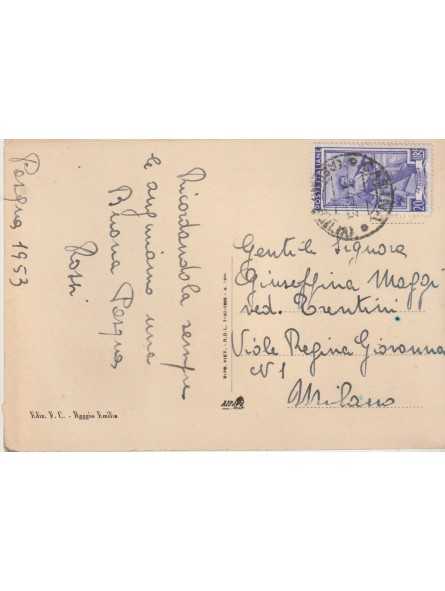 Pasqua 1953
Ricordandola sempre
le auguriamo una
Buona Pasqua
Rossi
Gentil. Signora
Giuseffina Maggi
ved. Trentini
Viale Regina Giovanna
N 1
Milano
Ediz. V. C. - Reggio Emilia
POSTE ITALIANE
20